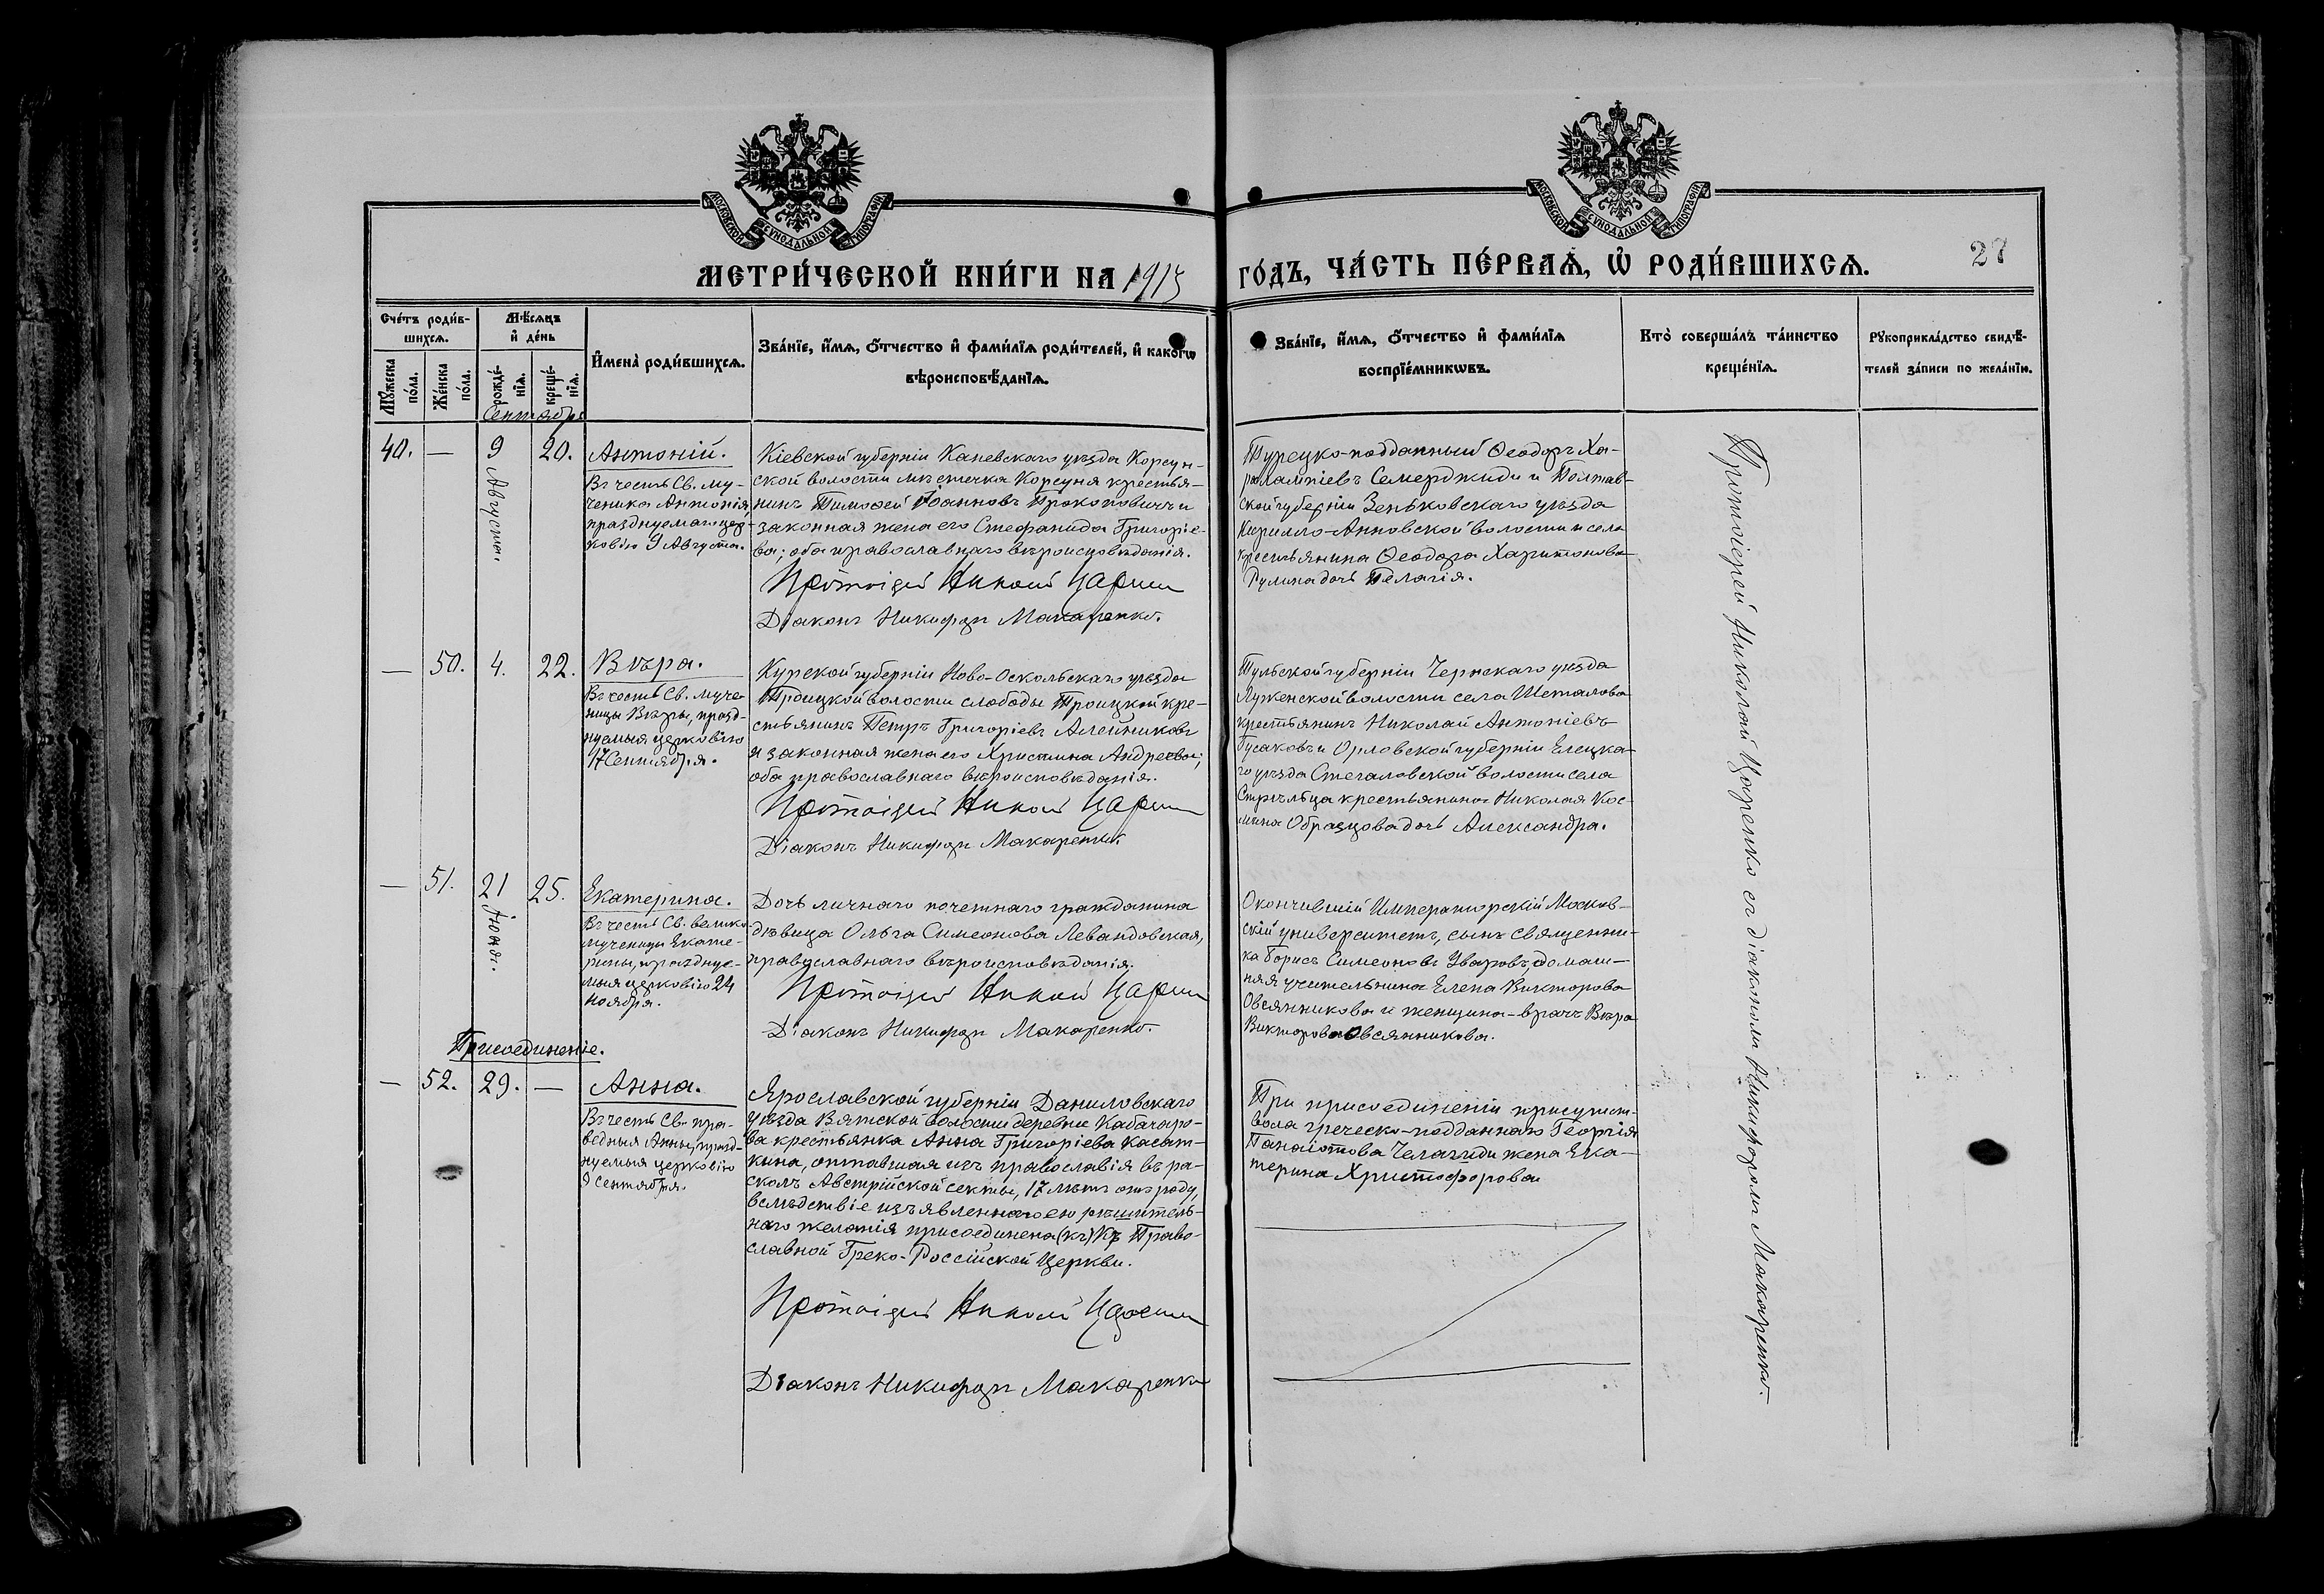 МОСКОВСКОЙ СѴНОДАЛЬНОЙ ТИПОГРАФІИ
МОСКОВСКОЙ СѴНОДАЛЬНОЙ ТИПОГРАФІИ
МЕТРИ́ЧЕСКОЙ КНИ́ГИ НА 1913
ГО́ДЪ, ЧА́СТЬ ПЕ́РВАѦ, Ѡ҆ РОДИ́ВШИХСѦ.
27
Сче́тъ роди́в-
шихсѧ.
Мꙋ́жеска по́ла.
Же́нска по́ла.
Мѣ́сѧцъ
и҆ де́нь
рожде́-
нїѧ.
креще́-
нїѧ.
И҆мена̀ роди́вшихсѧ.
Зва́нїе, и҆́мѧ, ѻ҆́тчество и҆ фами́лїѧ роди́телей, и҆ како́гѡ
вѣроисповѣ́данїѧ.
Зва́нїе, и҆́мѧ, ѻ҆́тчество и҆ фами́лїѧ
воспрїе́мникѡвъ.
Кто̀ соверша́лъ та́инство
креще́нїѧ.
Рꙋкоприкла́дство свидѣ́-
телей за́писи по жела́нїю.
Сентября
40. — 9 Августа. 20. Антоній.
Въ честь Св. му-
ченика Антонія,
празднуемаго цер-
ковію 9 Августа.
Кіевской губерніи Каневскаго уѣзда Корсун-
ской волости мѣстечка Корсуня крестья-
нинъ Тимоѳей Іоанновъ Прокоповичъ и
законная жена его Стефанида Григоріе-
ва; оба православнаго вѣроисповѣданія.
Протоіерей Николай Царенко
Діаконъ Никифоръ Макаренко.
Турецко-подданный Ѳеодоръ Ха-
ралампіевъ Семерджиди и Полтав-
ской губерніи Зеньковскаго уѣзда
Кирилло-Анновской волости и села
крестьянина Ѳеодора Харитонова
Рулина дочь Пелагія.
— 50. 4. 22. Вѣра.
Въ честь Св. муче-
ницы Вѣры, празд-
нуемыя церковію
17 Сентября.
Курской губерніи Ново-Оскольскаго уѣзда
Троицкой волости слободы Троицкой кре-
стьянинъ Петръ Григоріевъ Алейниковъ
и законная жена его Христина Андреева;
оба православнаго вѣроисповѣданія.
Протоіерей Николай Царенко
Діаконъ Никифоръ Макаренко.
Тульской губерніи Чернскаго уѣзда
волости села
крестьянинъ Николай Антоніевъ
Гусаковъ и Орловской губерніи Елецка-
го уѣзда Стегаловской волости села
Стрѣльца крестьянина Николая Кос-
мина Образцова дочь Александра.
— 51. 21 Іюня. 25. Екатерина.
Въ честь Св. велико-
мученицы Екате-
рины, празднуе-
мыя церковію 24
ноября.
Дочь личнаго почетнаго гражданина
дѣвица Ольга Симеонова Левандовская,
православнаго вѣроисповѣданія.
Протоіерей Николай Царенко
Діаконъ Никифоръ Макаренко.
Окончившій Императорскій Москов-
скій университетъ, сынъ священни-
ка Борисъ Симеоновъ Уваровъ, домаш-
няя учительница Елена Викторова
Овсянникова и женщина-врачъ Вѣра
Викторова Овсянникова.
Присоединеніе.
— 52. 29. — Анна.
Въ честь Св. пра-
ведныя Анны, празд-
нуемыя церковію
9 сентября.
Ярославской губерніи Даниловскаго
уѣзда Вятской волости деревни Кабачаро-
ва крестьянка Анна Григоріева Касат-
кина, отпавшая изъ православія въ ра-
сколъ Австрійской секты, 17 лѣтъ отъ роду,
вслѣдствіе изъявленнаго ею рѣшитель-
наго желанія присоединена (къ) къ Право-
славной Греко-Россійской Церкви.
Протоіерей Николай Царенко
Діаконъ Никифоръ Макаренко
При присоединеніи присутст-
вола греческо-подданнаго Георгія
Панаіотова Челагиди жена Ека-
терина Христофорова
Протоіерей Николай Царенко съ діакономъ Никифоромъ Макаренко.